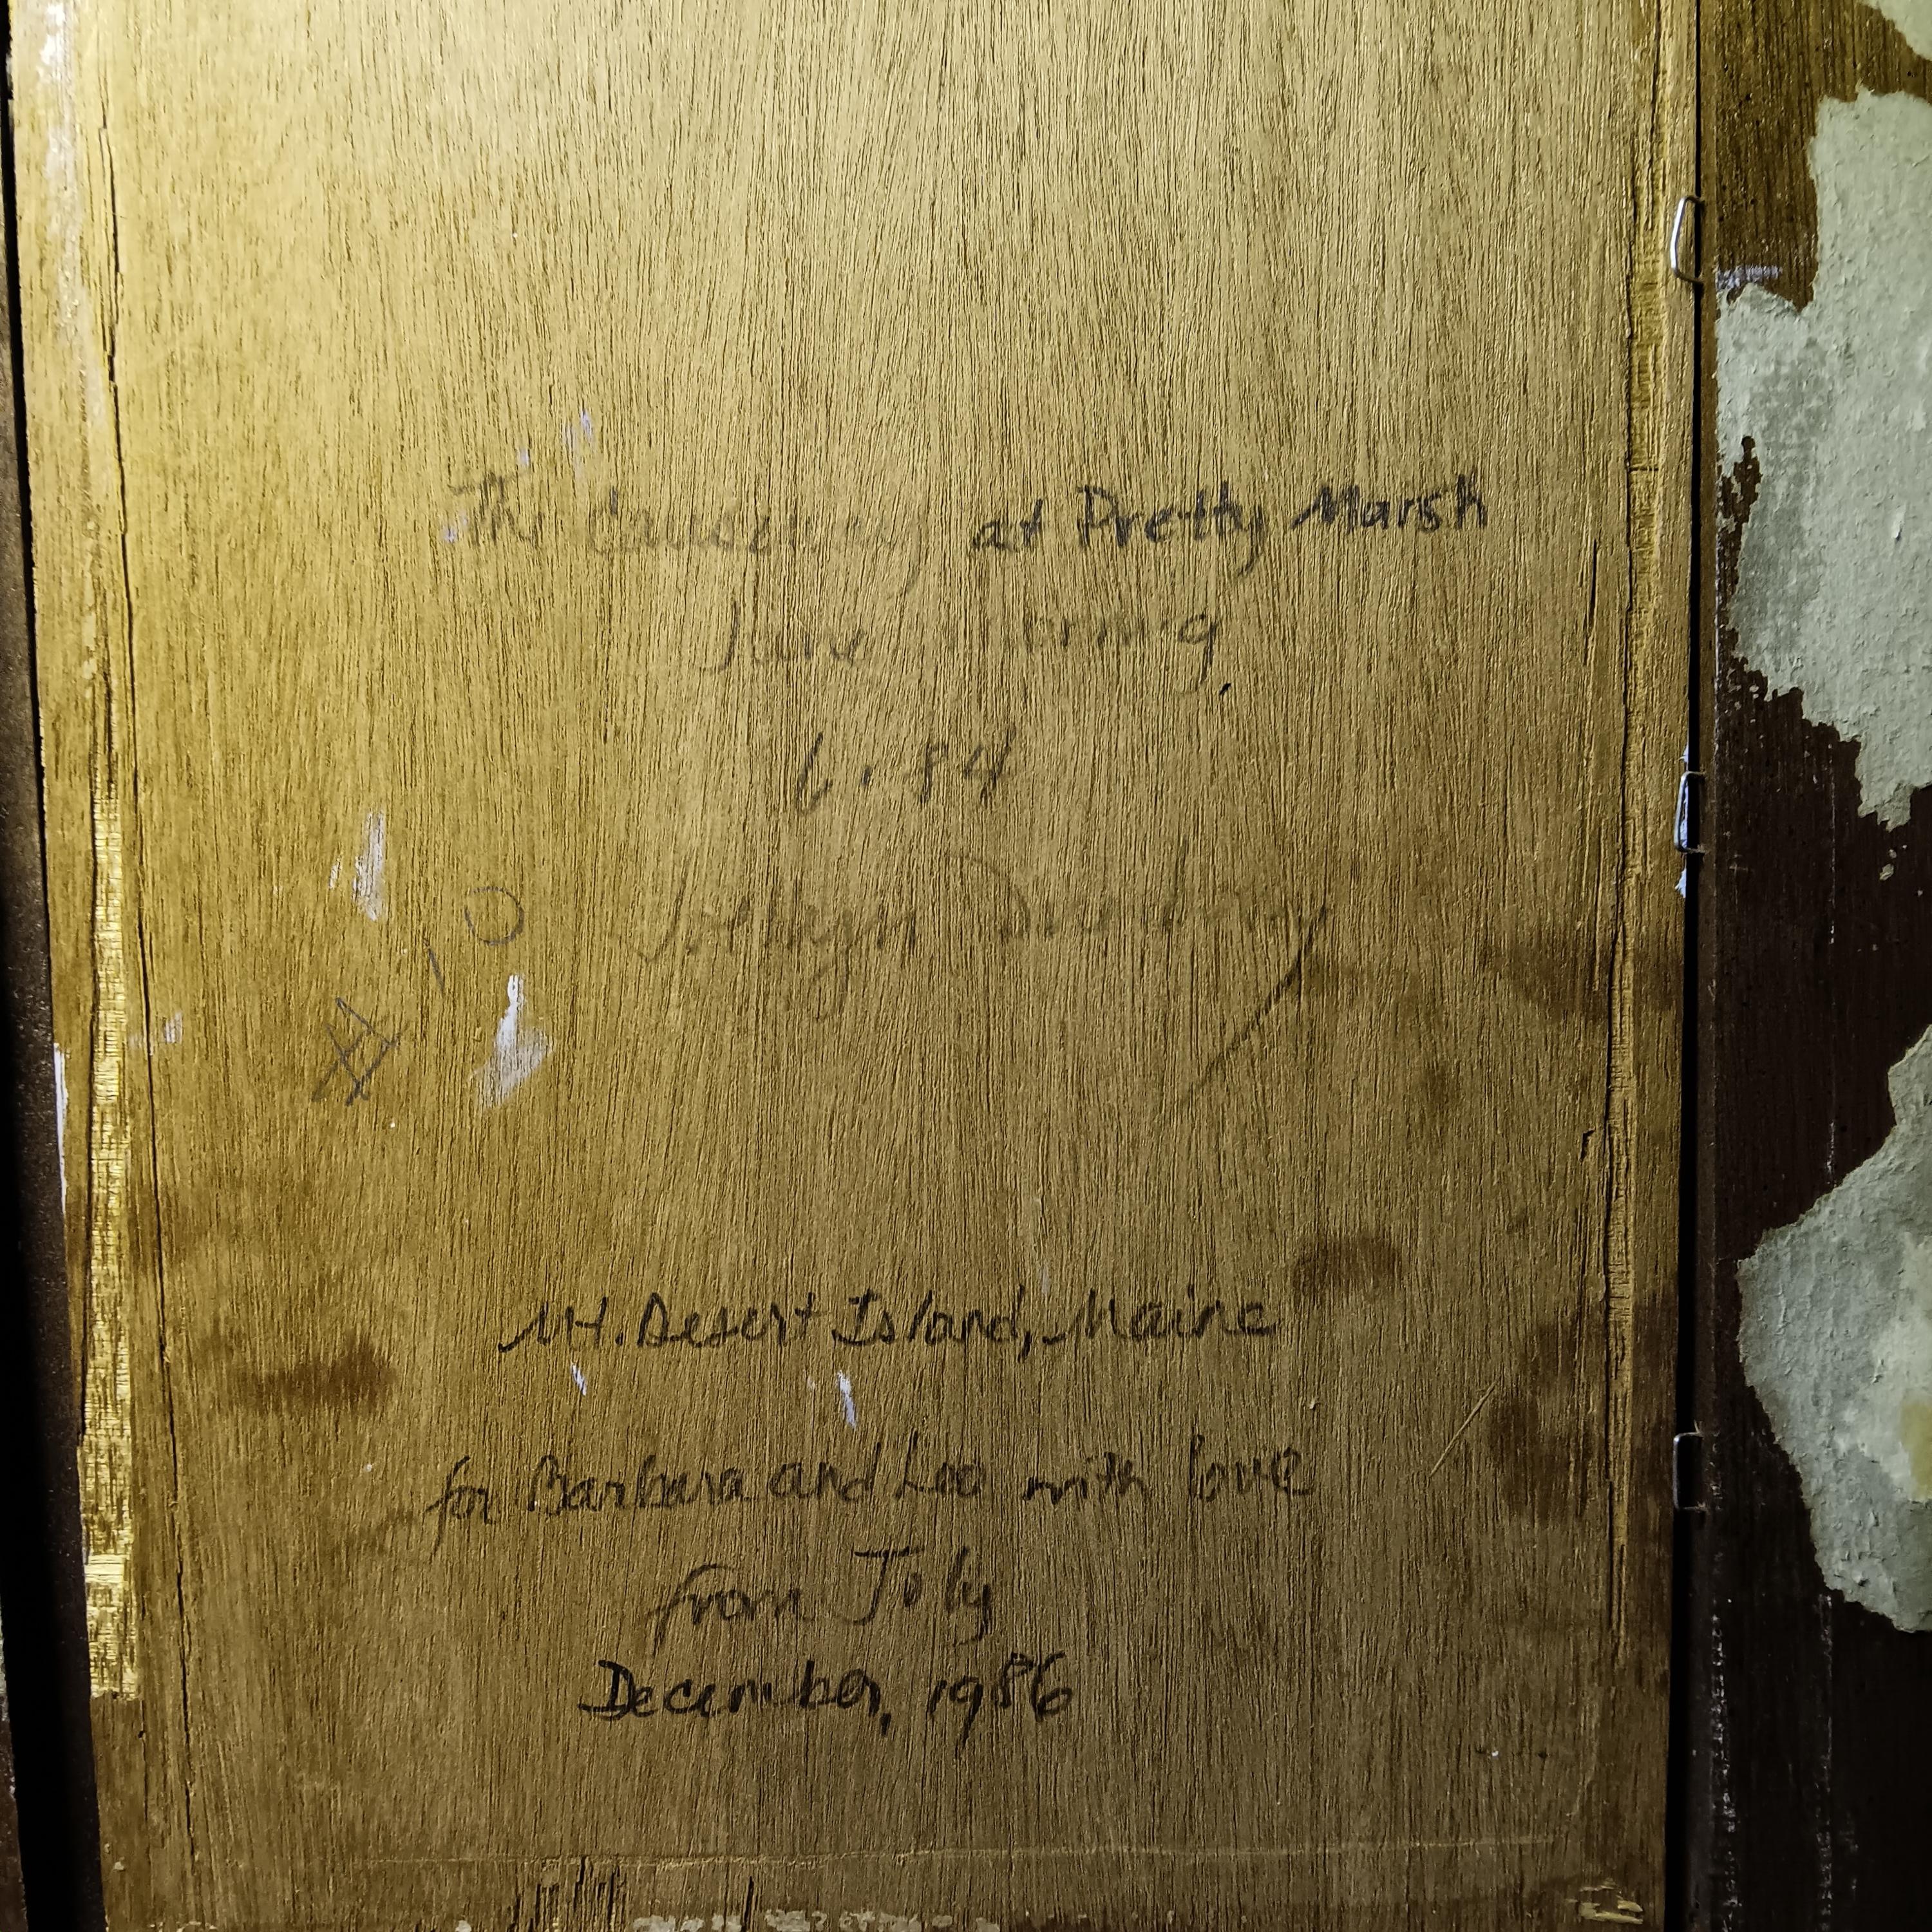 The Causeway at Pretty Marsh
June
6.84
#10
Mt. Desert Island, Maine
for Barbara and Leo with love
from Joly
December, 1986